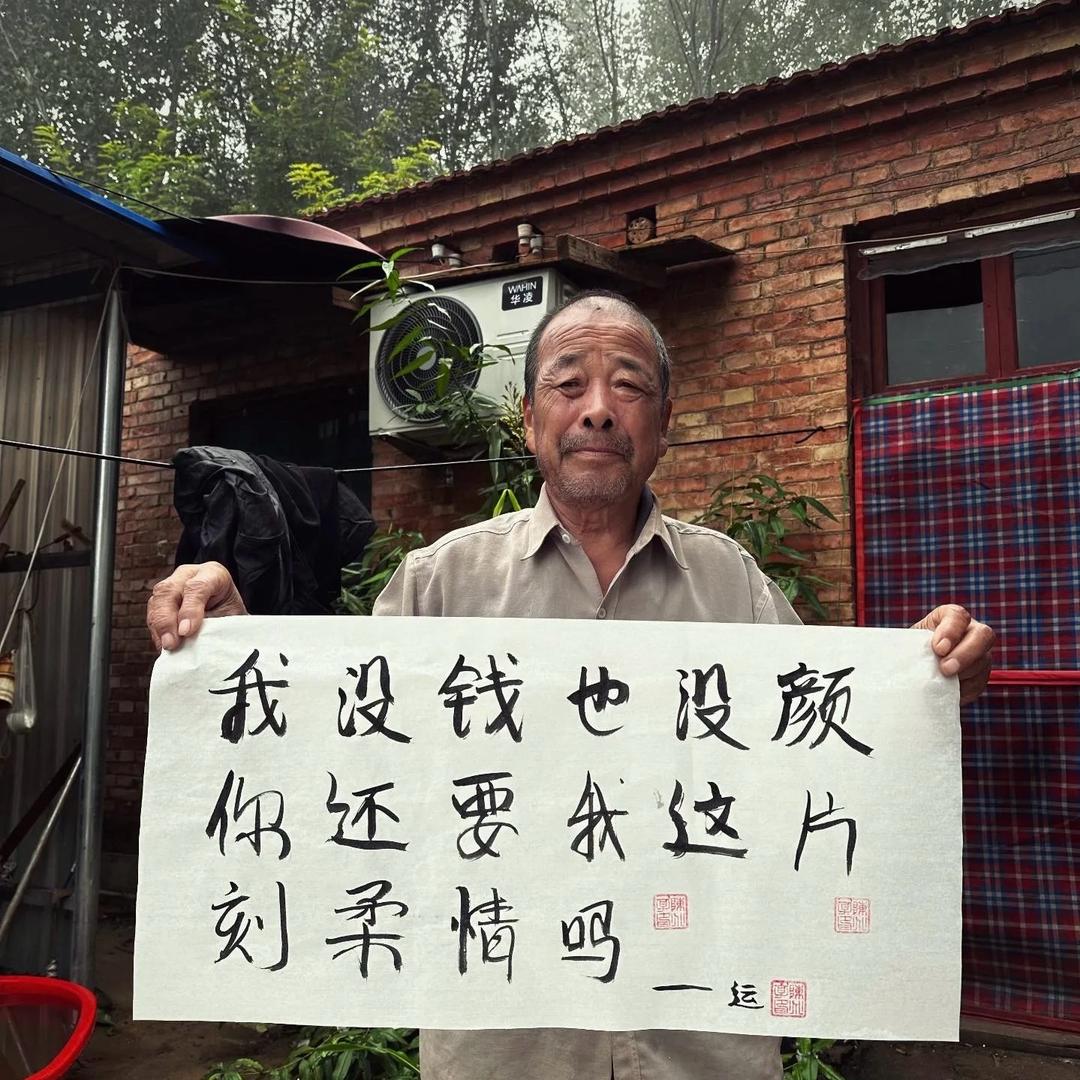 WAHIN
华凌
我没钱也没颜
你还要我这片
刻柔情吗
一运